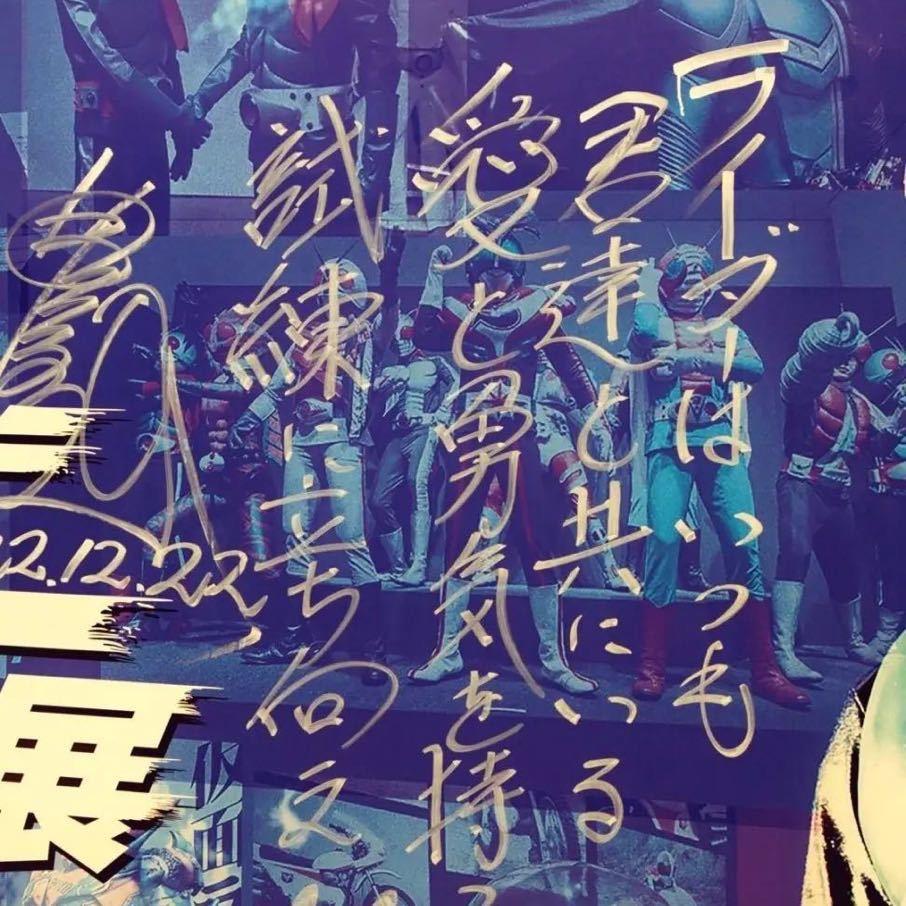 ライダーはいつも
君達と共にいる
愛と勇気を持
試練に立ち向え
2.12.22
展
仮面